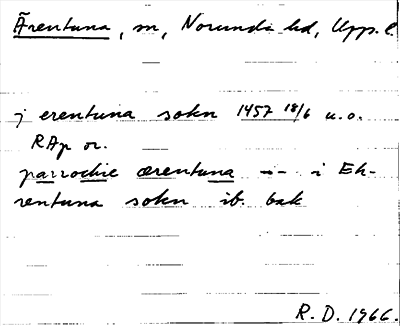 Ärentuna, sn, Norunda hd, Upps. l.
j erentuna sokn 1457 18/6 u.o.
RAp or.
parrochie ærentuna -"- i Eh-
rentuna sokn ib. bak
R. D. 1966.